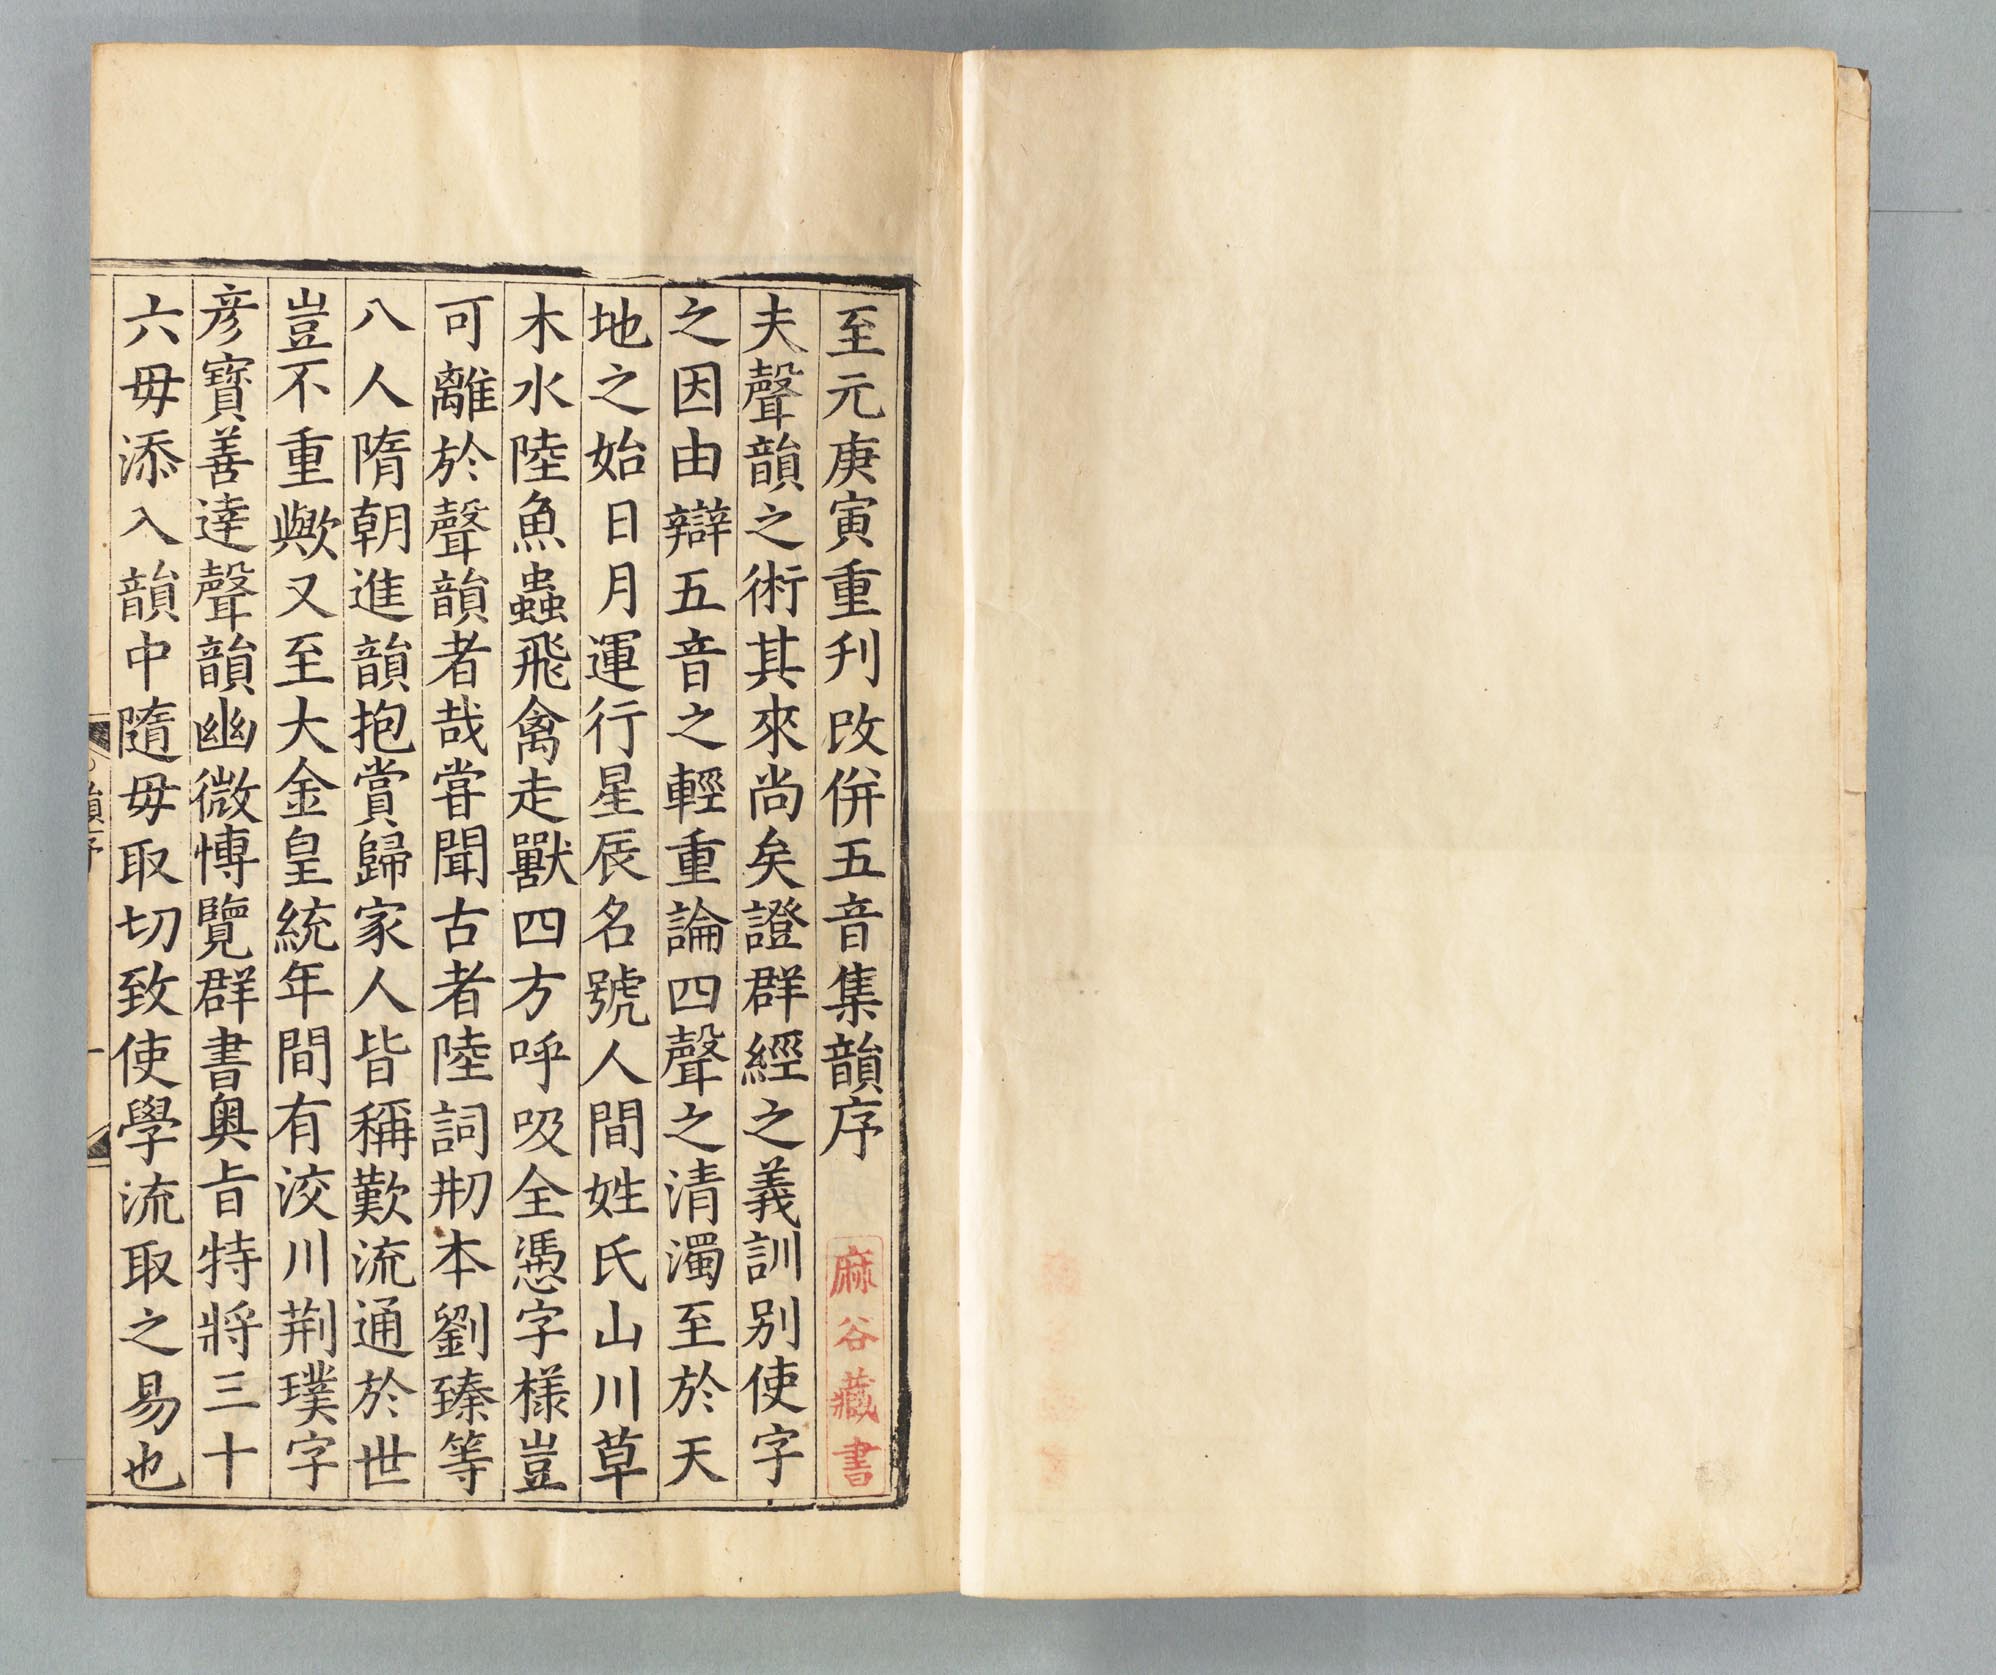 至元庚寅重刋改併五音集韻序
麻谷藏書
夫聲韻之術其來尚矣證群經之義訓别使字
之因由辯五音之輕重論四聲之清濁至於天
地之始日月運行星辰名號人間姓氏山川草
木水陸魚蟲飛禽走獸四方呼吸全憑字樣豈
可離於聲韻者哉甞聞古者陸詞刱本劉臻等
八人隋朝進韻抱賞歸家人皆稱歎流通於世
豈不重歟又至大金皇統年間有洨川荆璞字
彦寳善達聲韻幽微愽覽群書奥㫖特將三十
六毋添入韻中隨毋取切致使學流取之易也
韻序
一